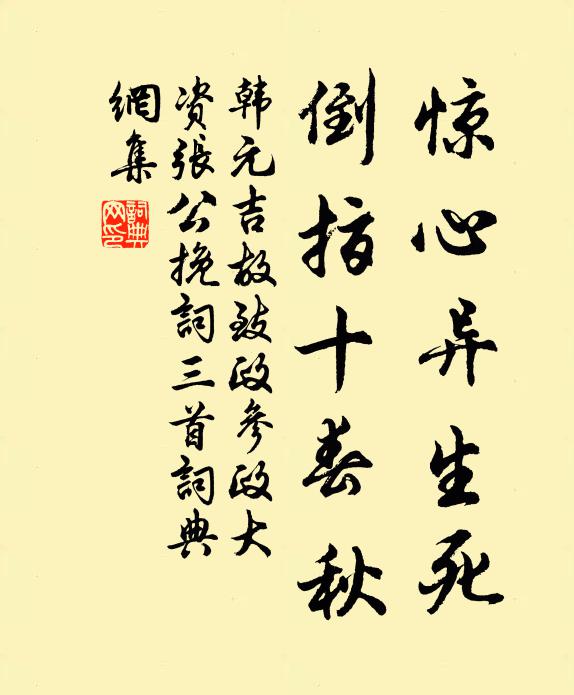 惊心异生死
倒指十春秋
韩元吉故致政参政大
资張公挽詞三首詞典
網集
詞典
网印